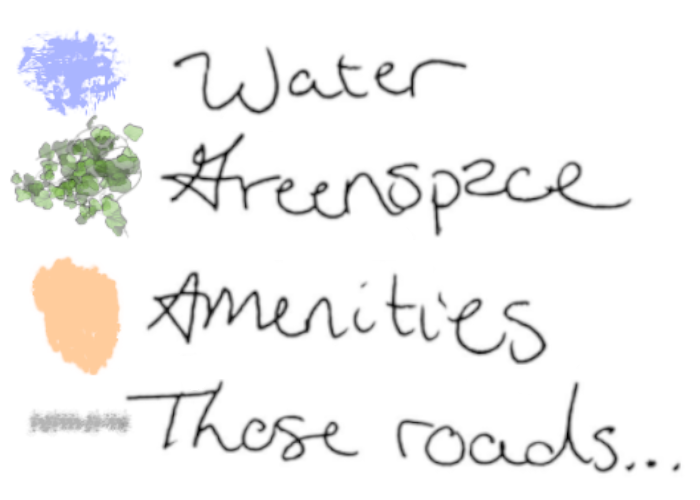 Water
Greenspace
Amenities
Those roads...